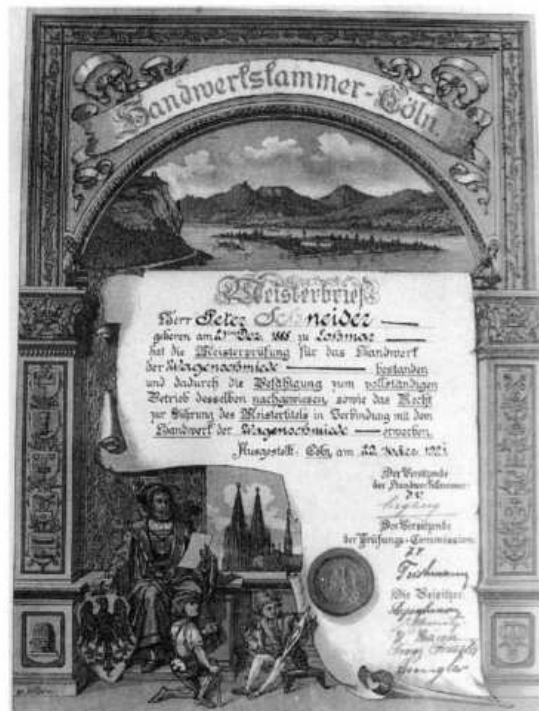 Handwerkskammer-Cöln.
Meisterbrief
Herr Peter Schneider
geboren am 21ten Dez. 1885 zu Lohmar
hat die Meisterprüfung für das Handwerk
der Wagenschmiede bestanden
und dadurch die Befähigung zum vollständigen
Betrieb desselben nachgewiesen, sowie das Recht
zur Führung des Meistertitels in Verbindung mit dem
Handwerk der Wagenschmiede erworben.
Ausgestellt: Cöln, am 22.
Der Vorsitzende
der Handwerkskammer:
Der Vorsitzende
der Prüfungs-Commission:
Die Beisitzer: